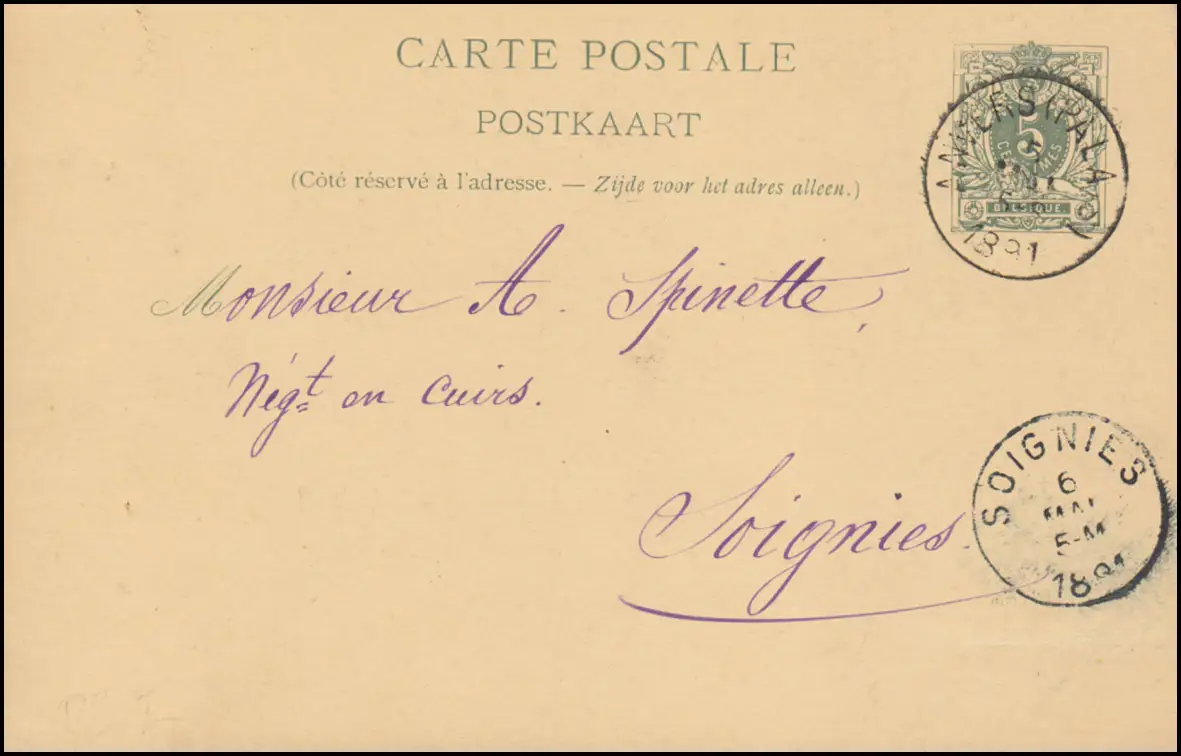 CARTE POSTALE
POSTKAART
(Côté réservé à l'adresse. — Zijde voor het adres alleen.)
5
CENTIMES
BELGIQUE
ANVERS (PALA
MAI
1891
Monsieur A. Spinette,
Négt en cuirs.
Soignies.
SOIGNIES
6
MAI
5-M
1891